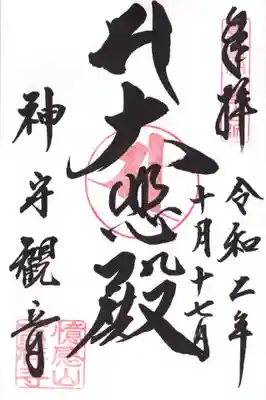 奉拝
令和二年
十月十七日
大悲殿
神守観音
憶感山
観音寺